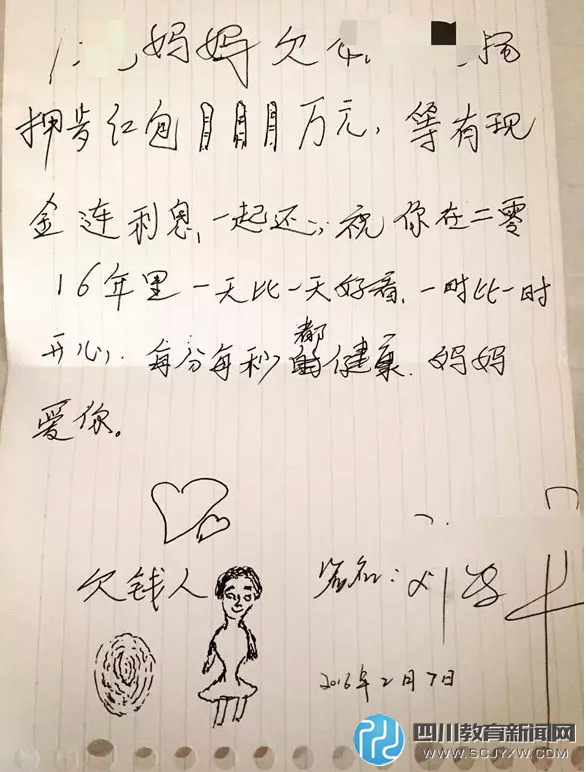 妈妈欠
押岁红包 万元，等有现
金连利息，一起还，祝你在二零
16年里一天比一天好看，一时比一时
开心，每分每秒都健康，妈妈
爱你。
欠钱人
签名：刘
2016年2月7日
四川教育新闻网
WWW.SCJYXW.COM